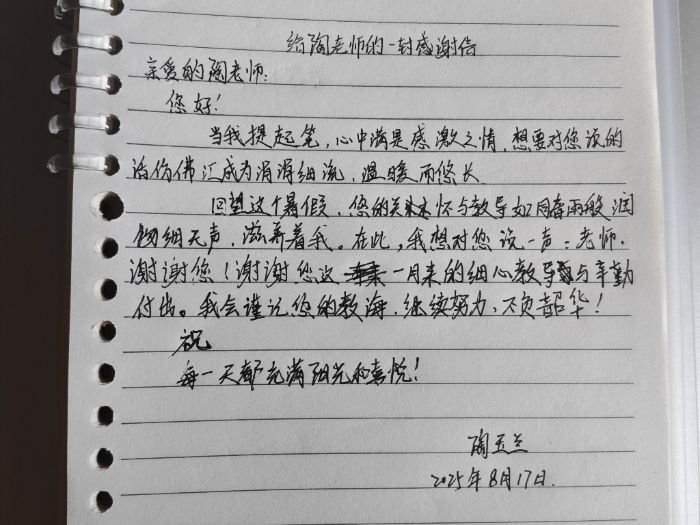 给陶老师的一封感谢信
亲爱的陶老师:
您好!
当我提起笔，心中满是感激之情，想要对您说的
话仿佛汇成为涓涓细流，温暖而悠长
回望这个暑假，您的关怀与教导如同春雨般润
物细无声，滋养着我。在此，我想对您说一声：老师，
谢谢您！谢谢您这一月来的细心教导与辛勤
付出。我会谨记您的教诲，继续努力，不负韶华！
祝
每一天都充满阳光和喜悦！
陶玉兰
2025年8月17日.